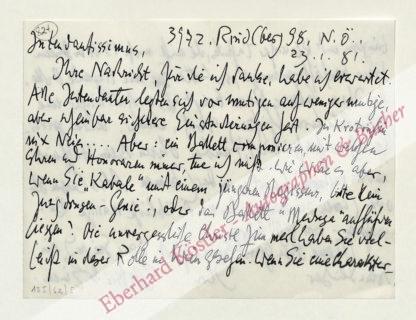 224
3972. Rindlberg 98, N.Ö.
23.1.81.
Intendantissimus,
Ihre Nachricht, für die ich danke, habe ich erwartet.
Alle Intendanten legten sich vor mutigen auf weniger mutige,
aber scheinbar sichere Einstudierungen fest.
nix Nein.... Aber: ein Ballett componieren, mit welchen
Ehren und Honoraren immer, tue ich nicht. Wie wäre es aber,
wenn Sie "Kabale" mit einem jüngeren Regisseur, bitte kein
Jungdrogen-Genie!, oder das Ballett "Medusa" aufführen
liessen? Die unvergessliche Christl Zimmerl haben Sie viel-
leicht in dieser Rolle in Wien gesehen. Wenn Sie eine Charakter-
125/62/5
Eberhard Köstler Autographen & Bücher